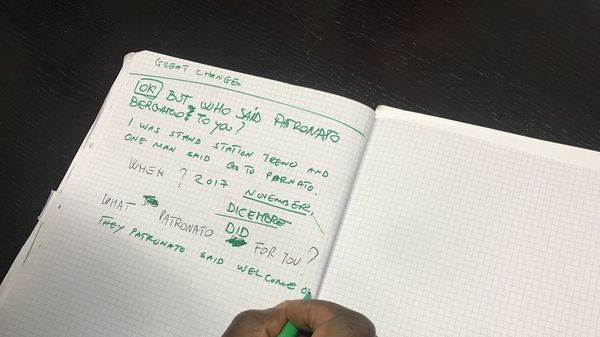 GREAT CHANGE.
OK BUT WHO SAID PATRONATO
BERGAMO TO YOU?
I WAS STAND STATION TRENO AND
ONE MAN SAID GO TO PARNATO.
WHEN? 2017 NOVEMBER.
DICEMBRE
WHAT PATRONATO DID FOR YOU?
THEY PATRONATO SAID WELCOME